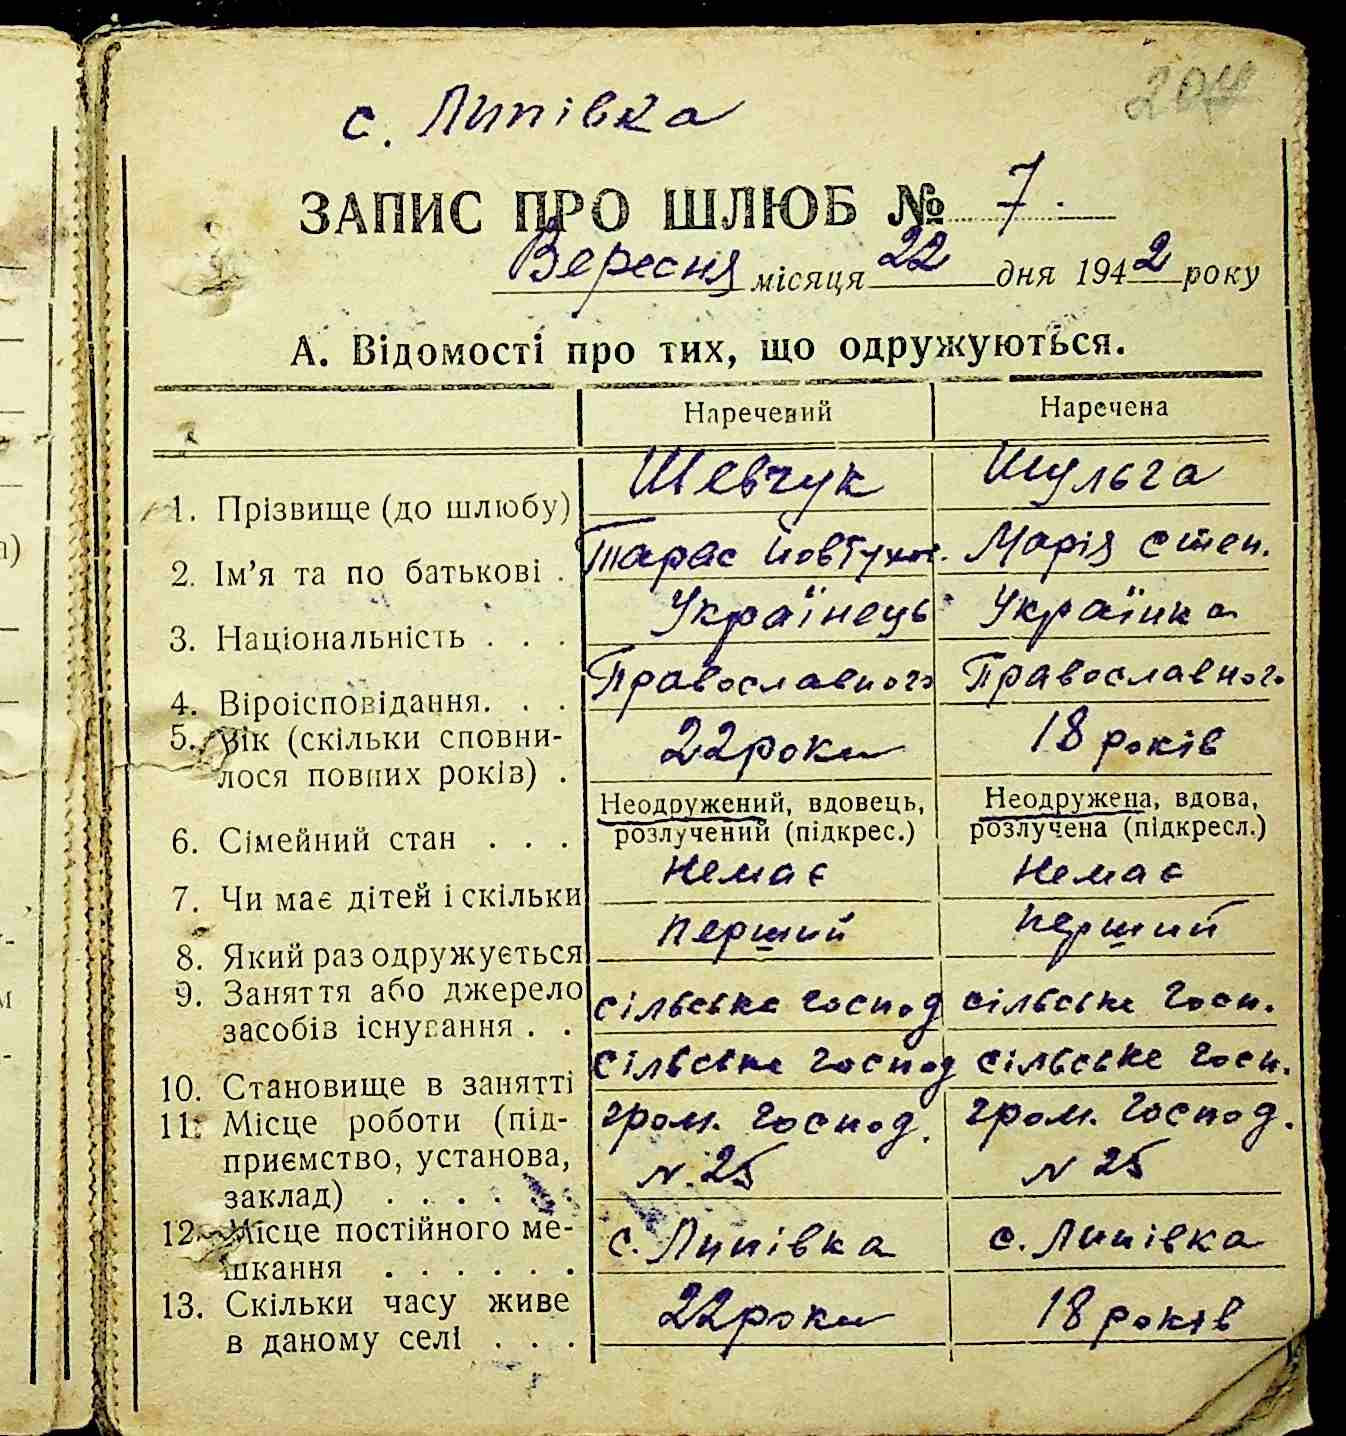 с. Липівка
ЗАПИС ПРО ШЛЮБ № 7.
Вересня місяця 22 дня 1942 року
А. Відомості про тих, що одружуються.
Наречений Наречена
1. Прізвище (до шлюбу) Шевчук Шульга
2. Ім’я та по батькові . Тарас Марія Степ.
3. Національність . . . Українець Українка
4. Віроісповідання. . . Православного Православного
5. Вік (скільки сповни-
лося повних років) . 22 роки 18 років
Неодружений, вдовець, Неодружена, вдова,
6. Сімейний стан . . . розлучений (підкрес.) розлучена (підкресл.)
7. Чи має дітей і скільки Немає Немає
8. Який раз одружується перший перший
9. Заняття або джерело
засобів існування . . сільське господ сільське госп.
10. Становище в занятті сільське господ сільське госп.
11. Місце роботи (під- гром. господ. гром. господ.
приємство, установа, N. 25 N 25
заклад) . . . . . .
12. Місце постійного ме-
шкання . . . . . . с. Липівка с. Липівка
13. Скільки часу живе
в даному селі . . . 22 роки 18 років